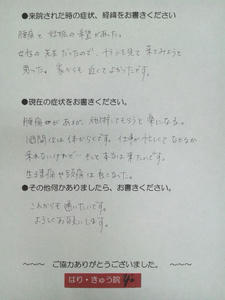 ●来院された時の症状、経緯をお書きください
腰痛と妊娠の希望があった。
女性の先生だったので、チラシを見て来てみようと
思った。家からも近くてよかったです。
●現在の症状をお書きください。
腰痛はあるが、施術してもらうと楽になる。
1週間位は体がらくです。仕事が忙しくてなかなか
来れないけれど
生理痛や頭痛は良くなった。
●その他何かありましたら、お書きください。
これからも通いたいです。
よろしくお願いします。
~~~ ご協力ありがとうございました。 ~~~
はり・きゅう院